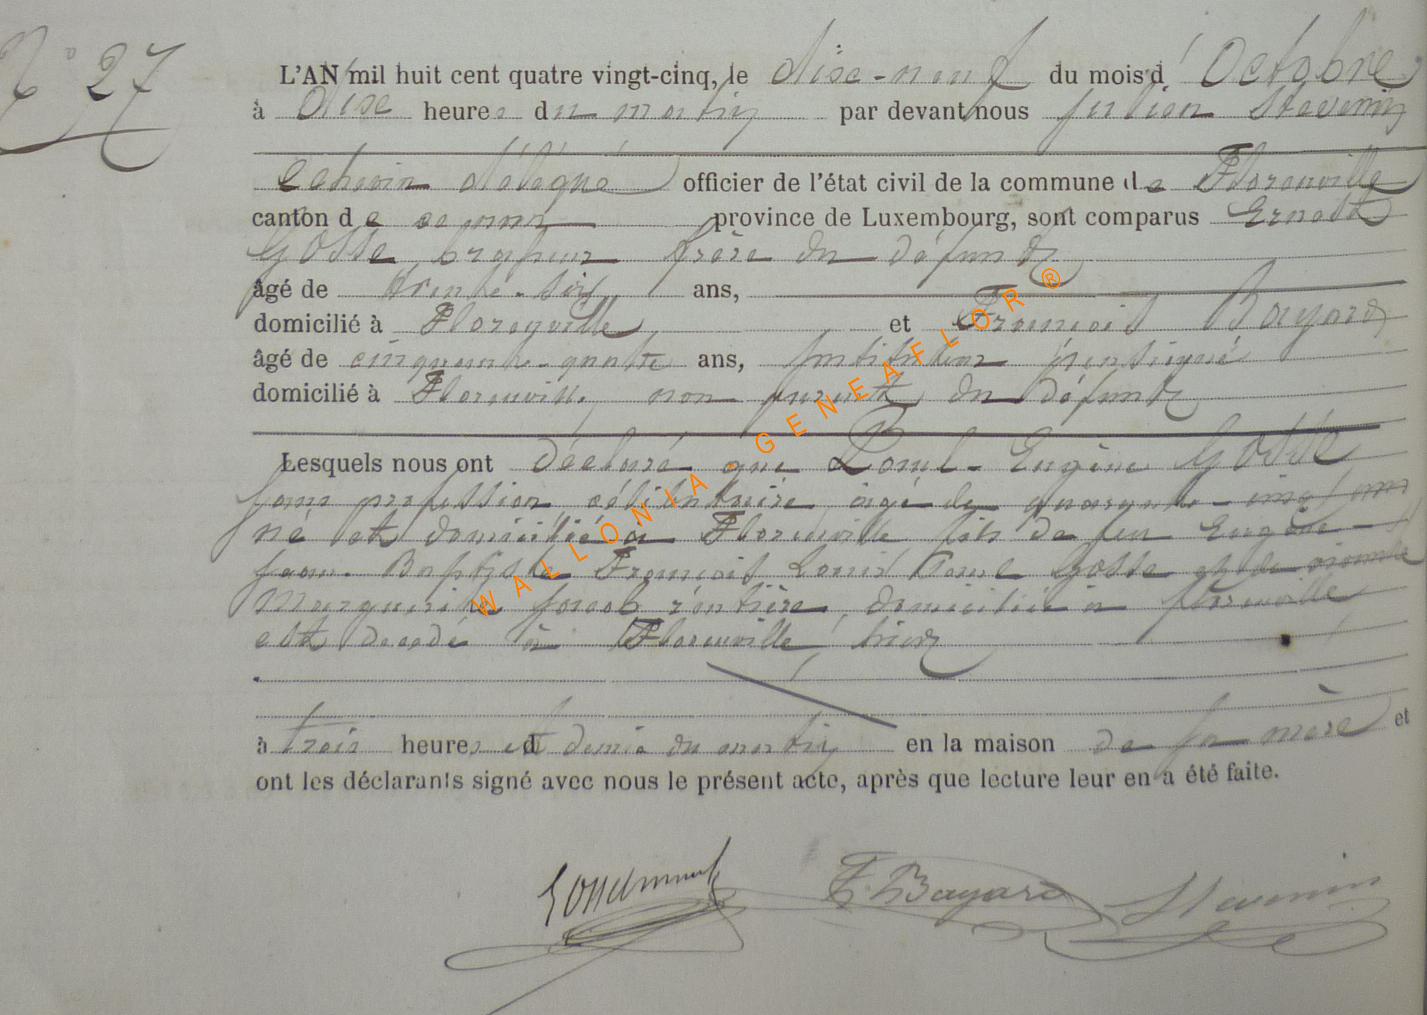 N° 27
L'AN mil huit cent quatre vingt-cinq, le dixe-neuf du mois d'Octobre
à dixe heures du matin par devant nous Julien Stevenin
Echevin délégué officier de l'état civil de la commune de Florenville
canton de province de Luxembourg, sont comparus Ernest
Gosse, frère du défunt
âgé de trente-six ans,
domicilié à Florenville et François Bayard
âgé de cinquante-quatre ans, Instituteur pensionné
domicilié à Florenville, non parent du défunt
Lesquels nous ont déclaré que Paul-Eugène Gosse
sans profession célibataire âgé de quarante-cinq ans
né et domicilié à Florenville fils de feu Eugène-
Jean-Baptiste François Louis Gosse et de
Marguerite Jacob rentière, domiciliée à Florenville
est décédé à Florenville, hier
à trois heures et demie du matin en la maison de sa mère et
ont les déclarants signé avec nous le présent acte, après que lecture leur en a été faite.
F. Bayard Stevenin
WALLONIA - GENEAFLOR ®